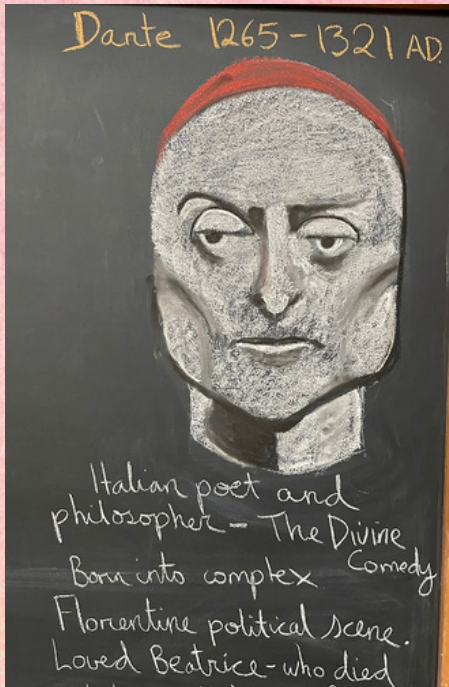 Dante 1265-1321 AD.
Italian poet and
philosopher - The Divine
Comedy
Born into complex
Florentine political scene.
Loved Beatrice - who died